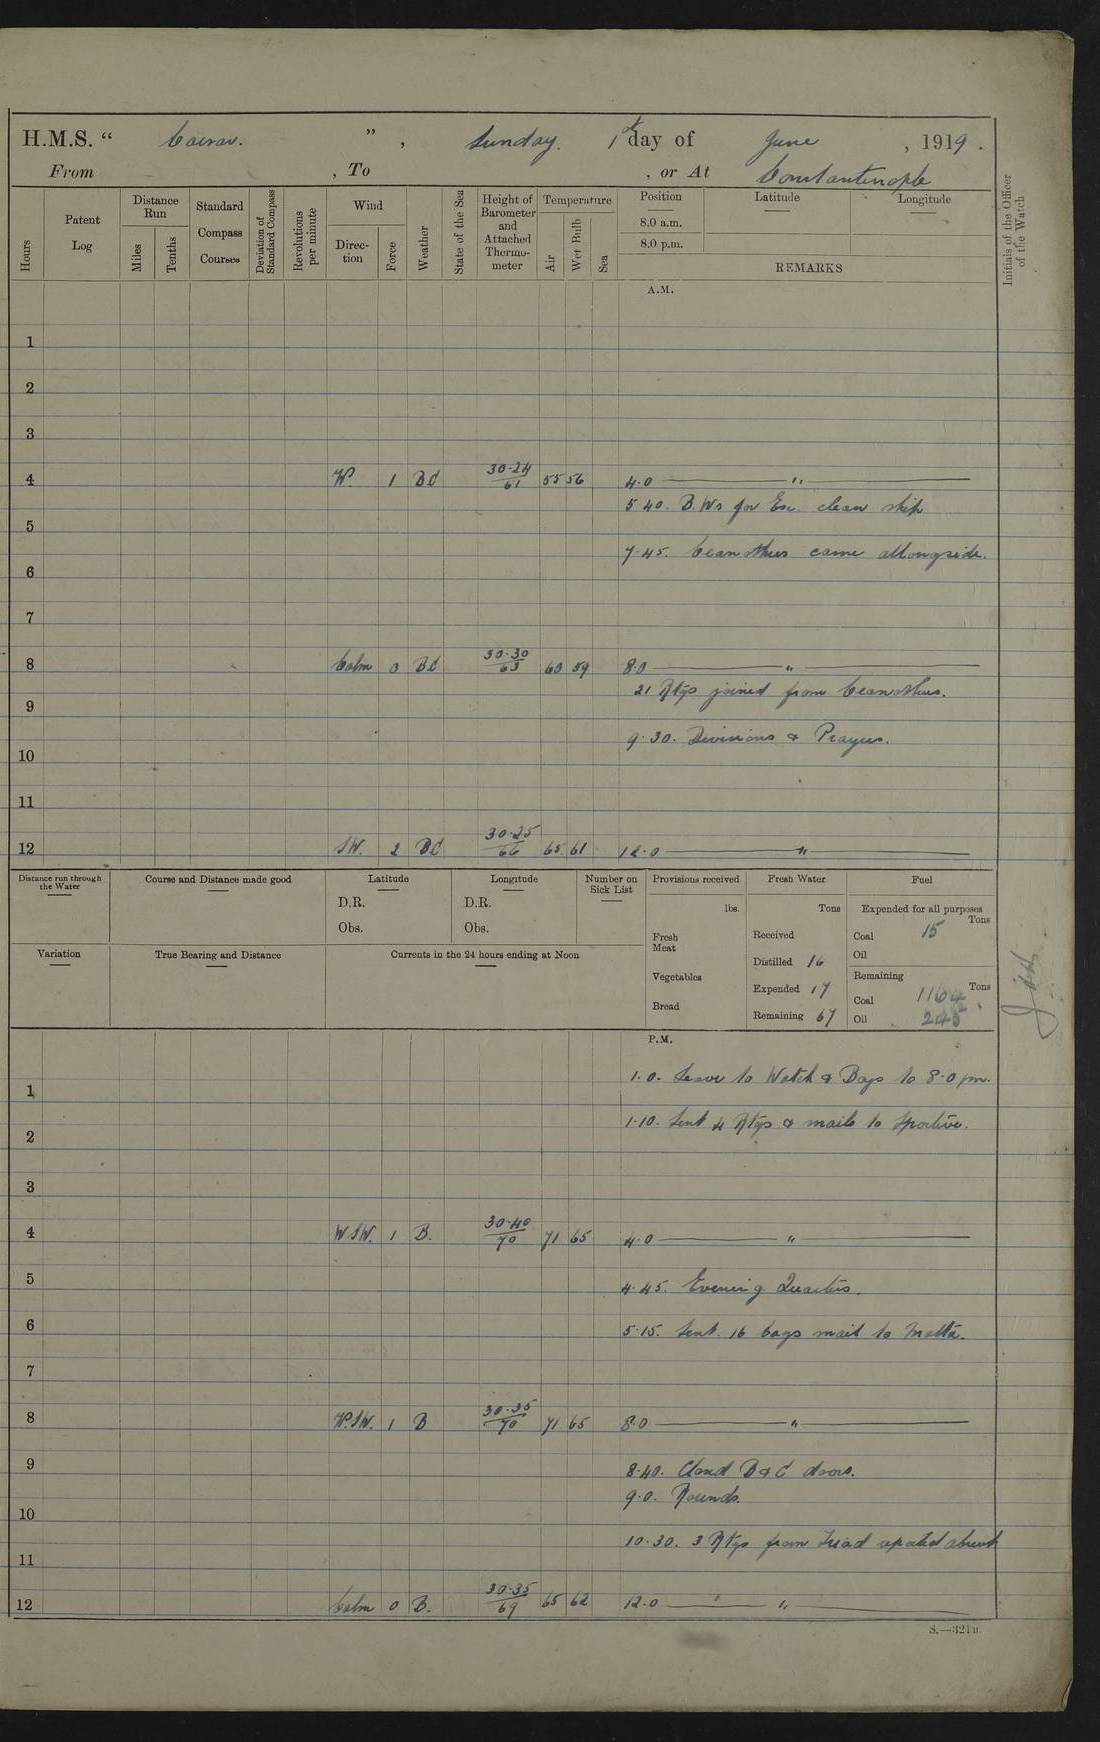 H.M.S. “ Caesar. ”, Sunday. 1st day of June, 1919.
From , To , or At Constantinople
Hours
Patent Log
Distance Run
Miles
Tenths
Standard Compass Courses
Deviation of Standard Compass
Revolutions per minute
Wind
Direction
Force
Weather
State of the Sea
Height of Barometer and Attached Thermometer
Temperature
Air
Wet Bulb
Sea
Position
Latitude
Longitude
8.0 a.m.
8.0 p.m.
REMARKS
Initials of the Officer of the Watch
A.M.
1
2
3
4 W. 1 BC 30.24/61 55 56 4.0 — " —
5.40. B.Ws for Ex. clean ship
5
7.45. Ceanothus came allongside.
6
7
8 Calm 0 BC 30.30/63 60 59 8.0 — " —
21 Rtgs joined from Ceanothus.
9
9.30. Divisions & Prayers.
10
11
12 SW. 2 BC 30.25/66 65 61 12.0 — " —
Distance run through the Water
Course and Distance made good
Latitude
D.R.
Obs.
Longitude
D.R.
Obs.
Number on Sick List
Provisions received
lbs.
Fresh Meat
Vegetables
Bread
Fresh Water
Tons
Received
Distilled 16
Expended 17
Remaining 67
Fuel
Expended for all purposes
Tons
Coal 15
Oil
Remaining
Tons
Coal 1164
Oil
Variation
True Bearing and Distance
Currents in the 24 hours ending at Noon
P.M.
1.0. Leave to Watch & Boys to 8.0 pm.
1
1.10. Sent 4 Rtgs & mails to Sportive.
2
3
4 WSW. 1 B. 30.40/70 71 65 4.0 — " —
5
4.45. Evening Quarters.
6
5.15. Sent. 16 bags mail to Malta.
7
8 W.SW. 1 B 30.35/70 71 65 8.0 — " —
9
8.40. Closed B & C doors.
9.0. Rounds.
10
10.30. 3 Rtgs from Triad reported absent
11
12 Calm 0 B. 30.35/69 65 62 12.0 — " —
S.—321